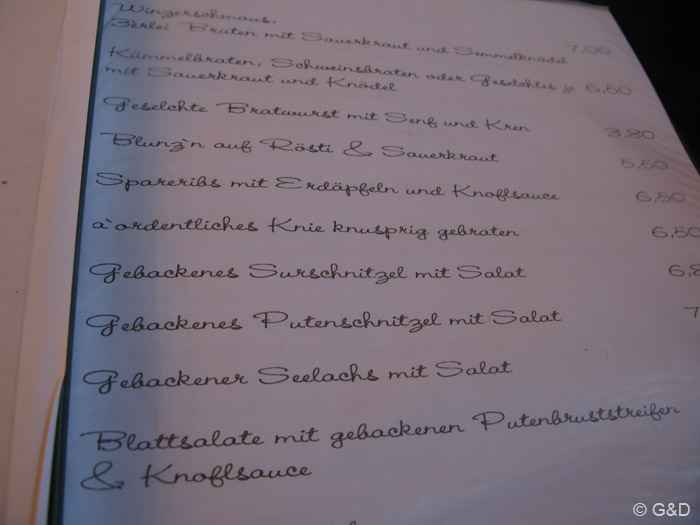 Winzerschmaus,
3erlei Braten mit Sauerkraut und Semmelknödel 7,00
Kümmelbraten, Schweinsbraten oder Geselchtes je 6,50
mit Sauerkraut und Knödel
Geselchte Bratwurst mit Senf und Kren 3,80
Blunz'n auf Rösti & Sauerkraut 5,50
Spareribs mit Erdäpfeln und Knoflsauce 6,50
a'ordentliches Knie knusprig gebraten 6,50
Gebackenes Surschnitzel mit Salat 6,8
Gebackenes Putenschnitzel mit Salat 7
Gebackener Seelachs mit Salat
Blattsalate mit gebackenen Putenbruststreifen
& Knoflsauce
© G&D